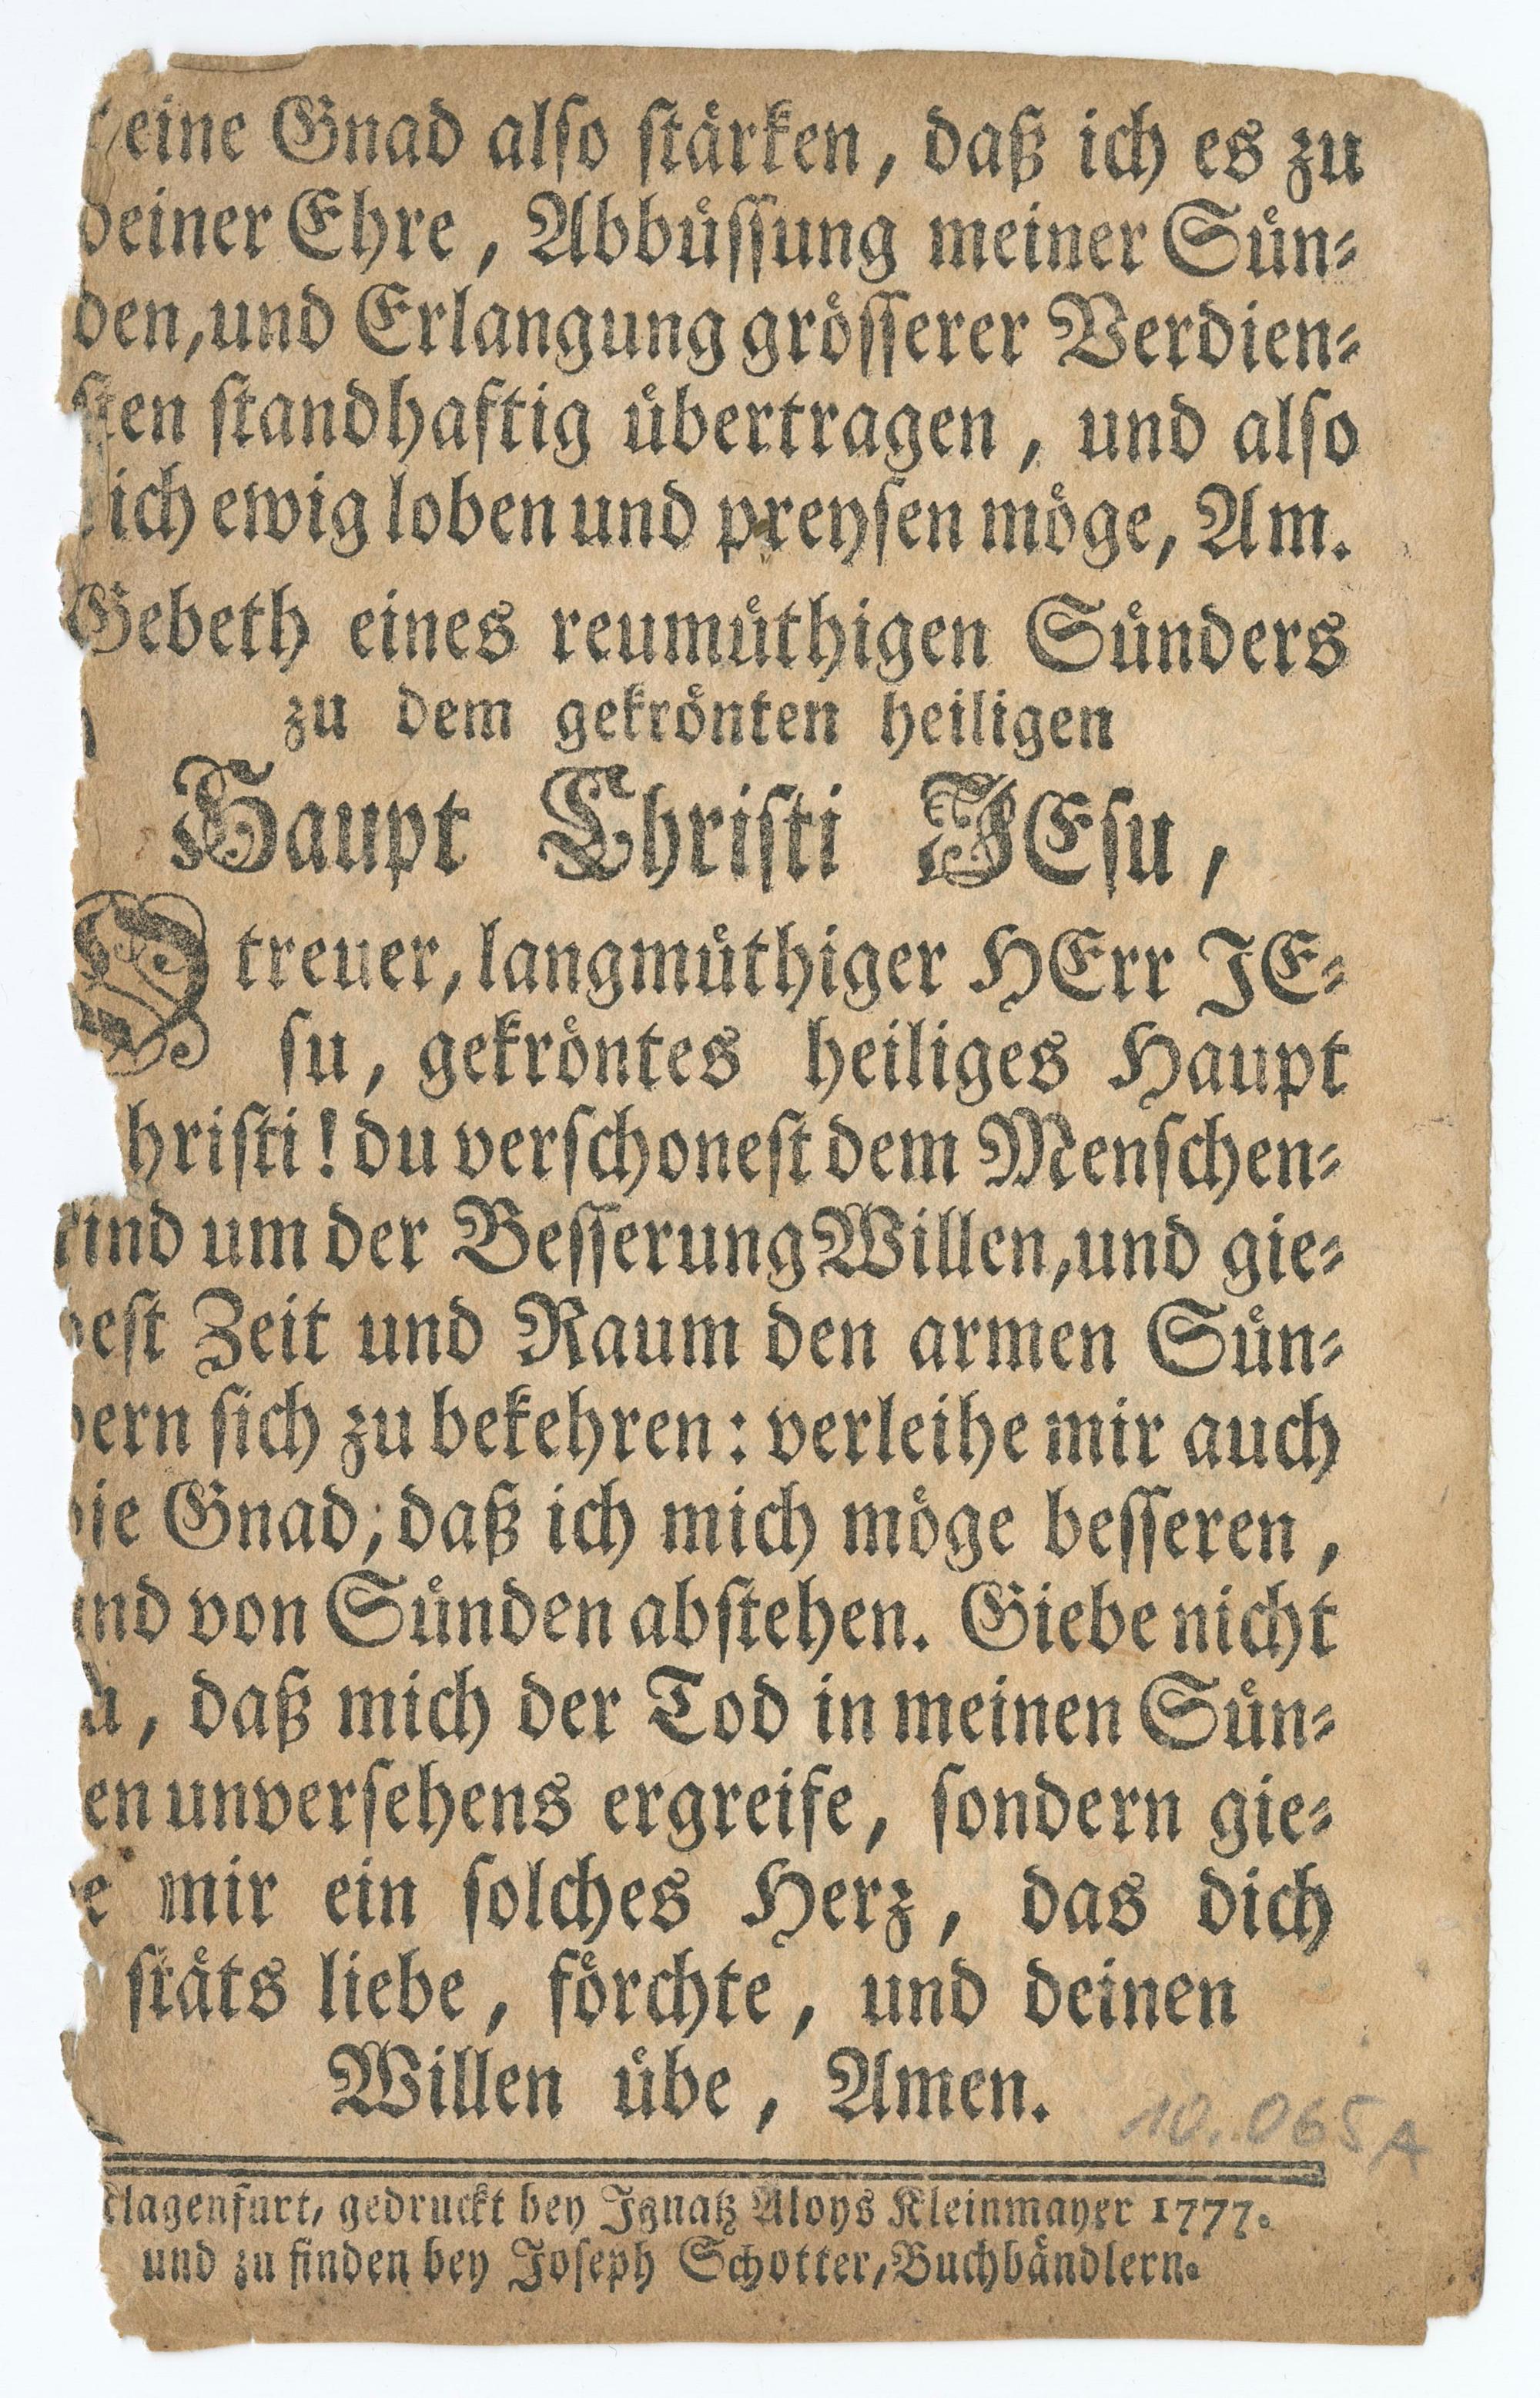 eine Gnad alſo ſtårken, daß ich es zu
deiner Ehre, Abbůſſung meiner Sůn⸗
den, und Erlangung gröſſerer Verdien⸗
ſten ſtandhaftig ůbertragen, und alſo
ich ewig loben und preyſen möge, Am.
Gebeth eines reumůthigen Sůnders
zu dem gekrönten heiligen
Haupt Chriſti JEſu,
O treuer, langmůthiger HErr JE⸗
ſu, gekröntes heiliges Haupt
hriſti! du verſchoneſt dem Menſchen⸗
kind um der Beſſerung Willen, und gie⸗
beſt Zeit und Raum den armen Sůn⸗
dern ſich zu bekehren: verleihe mir auch
die Gnad; daß ich mich möge beſſeren,
und von Sůnden abſtehen. Giebe nicht
zu, daß mich der Tod in meinen Sůn⸗
en unverſehens ergreife, ſondern gie⸗
e mir ein ſolches Herz, das dich
ſtåts liebe, förchte, und deinen
Willen ůbe, Amen.
10.065A
Klagenfurt, gedruckt bey Ignatz Aloys Kleinmayer 1777.
und zu finden bey Joſeph Schotter, Buchbändlern.